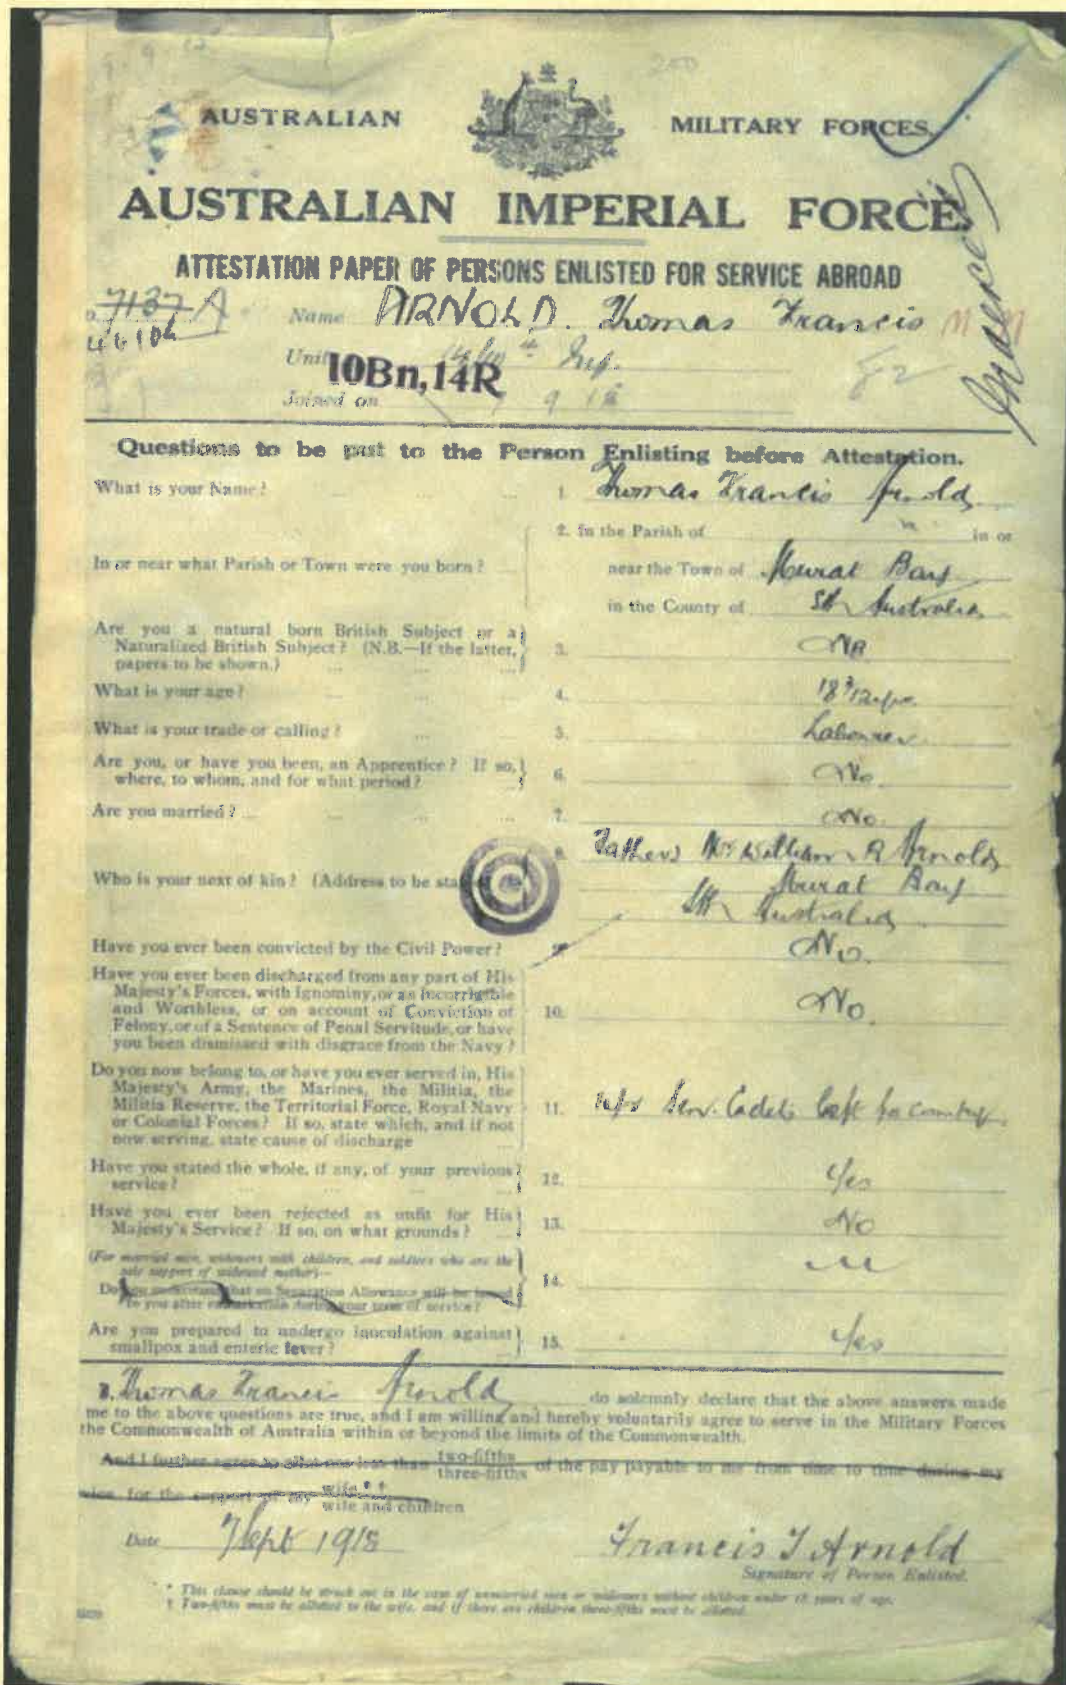 AUSTRALIAN MILITARY FORCES.
AUSTRALIAN IMPERIAL FORCE
ATTESTATION PAPER OF PERSONS ENLISTED FOR SERVICE ABROAD
7137 A Name ARNOLD. Thomas Francis
Unit 10Bn, 14R
Joined on
Questions to be put to the Person Enlisting before Attestation.
What is your Name? ... 1. Thomas Francis Arnold
2. In the Parish of in or
In or near what Parish or Town were you born? near the Town of Murat Bay
in the County of Sth Australia
Are you a natural born British Subject or a
Naturalized British Subject? (N.B.—If the latter, 3.
papers to be shown.)
What is your age? 4. 18
What is your trade or calling? 5. Labourer
Are you, or have you been, an Apprentice? If so, 6. No
where, to whom, and for what period?
Are you married? 7. No.
8. Father Mr William R Arnold
Who is your next of kin? (Address to be Murat Bay
Sth Australia
Have you ever been convicted by the Civil Power? 9. No.
Have you ever been discharged from any part of His
Majesty's Forces, with Ignominy, or as Incorrigible
and Worthless, or on account of Conviction of 10. No.
Felony, or of a Sentence of Penal Servitude, or have
you been dismissed with disgrace from the Navy?
Do you now belong to, or have you ever served in, His
Majesty's Army, the Marines, the Militia, the
Militia Reserve, the Territorial Force, Royal Navy 11. Sen. Cadets left for country
or Colonial Forces? If so, state which, and if not
now serving, state cause of discharge
Have you stated the whole, if any, of your previous 12. Yes
service?
Have you ever been rejected as unfit for His 13. No
Majesty's Service? If so, on what grounds?
(For married men, widowers with children, and soldiers who are the
sole support of widowed mother)—
14.
Do you understand that no Separation Allowance will be issued
to you after embarkation during your term of service?
Are you prepared to undergo inoculation against 15. Yes
smallpox and enteric fever?
I, Thomas Francis Arnold do solemnly declare that the above answers made
me to the above questions are true, and I am willing and hereby voluntarily agree to serve in the Military Forces
the Commonwealth of Australia within or beyond the limits of the Commonwealth.
And I further agree to allot not less than two-fifths three-fifths of the pay payable to me from time to time during my
for the support of my wife wife and children
Date 7 Sept 1918 Francis T Arnold
Signature of Person Enlisted.
* This clause should be struck out in the case of unmarried men or widowers without children under 18 years of age.
† Two-fifths must be allotted to the wife, and if there are children three-fifths must be allotted.